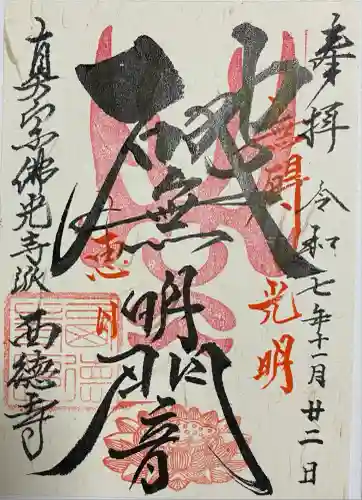 奉拝 令和七年十一月廿二日
無碍
光明
破無明闇
恵日
真宗佛光寺派 西徳寺